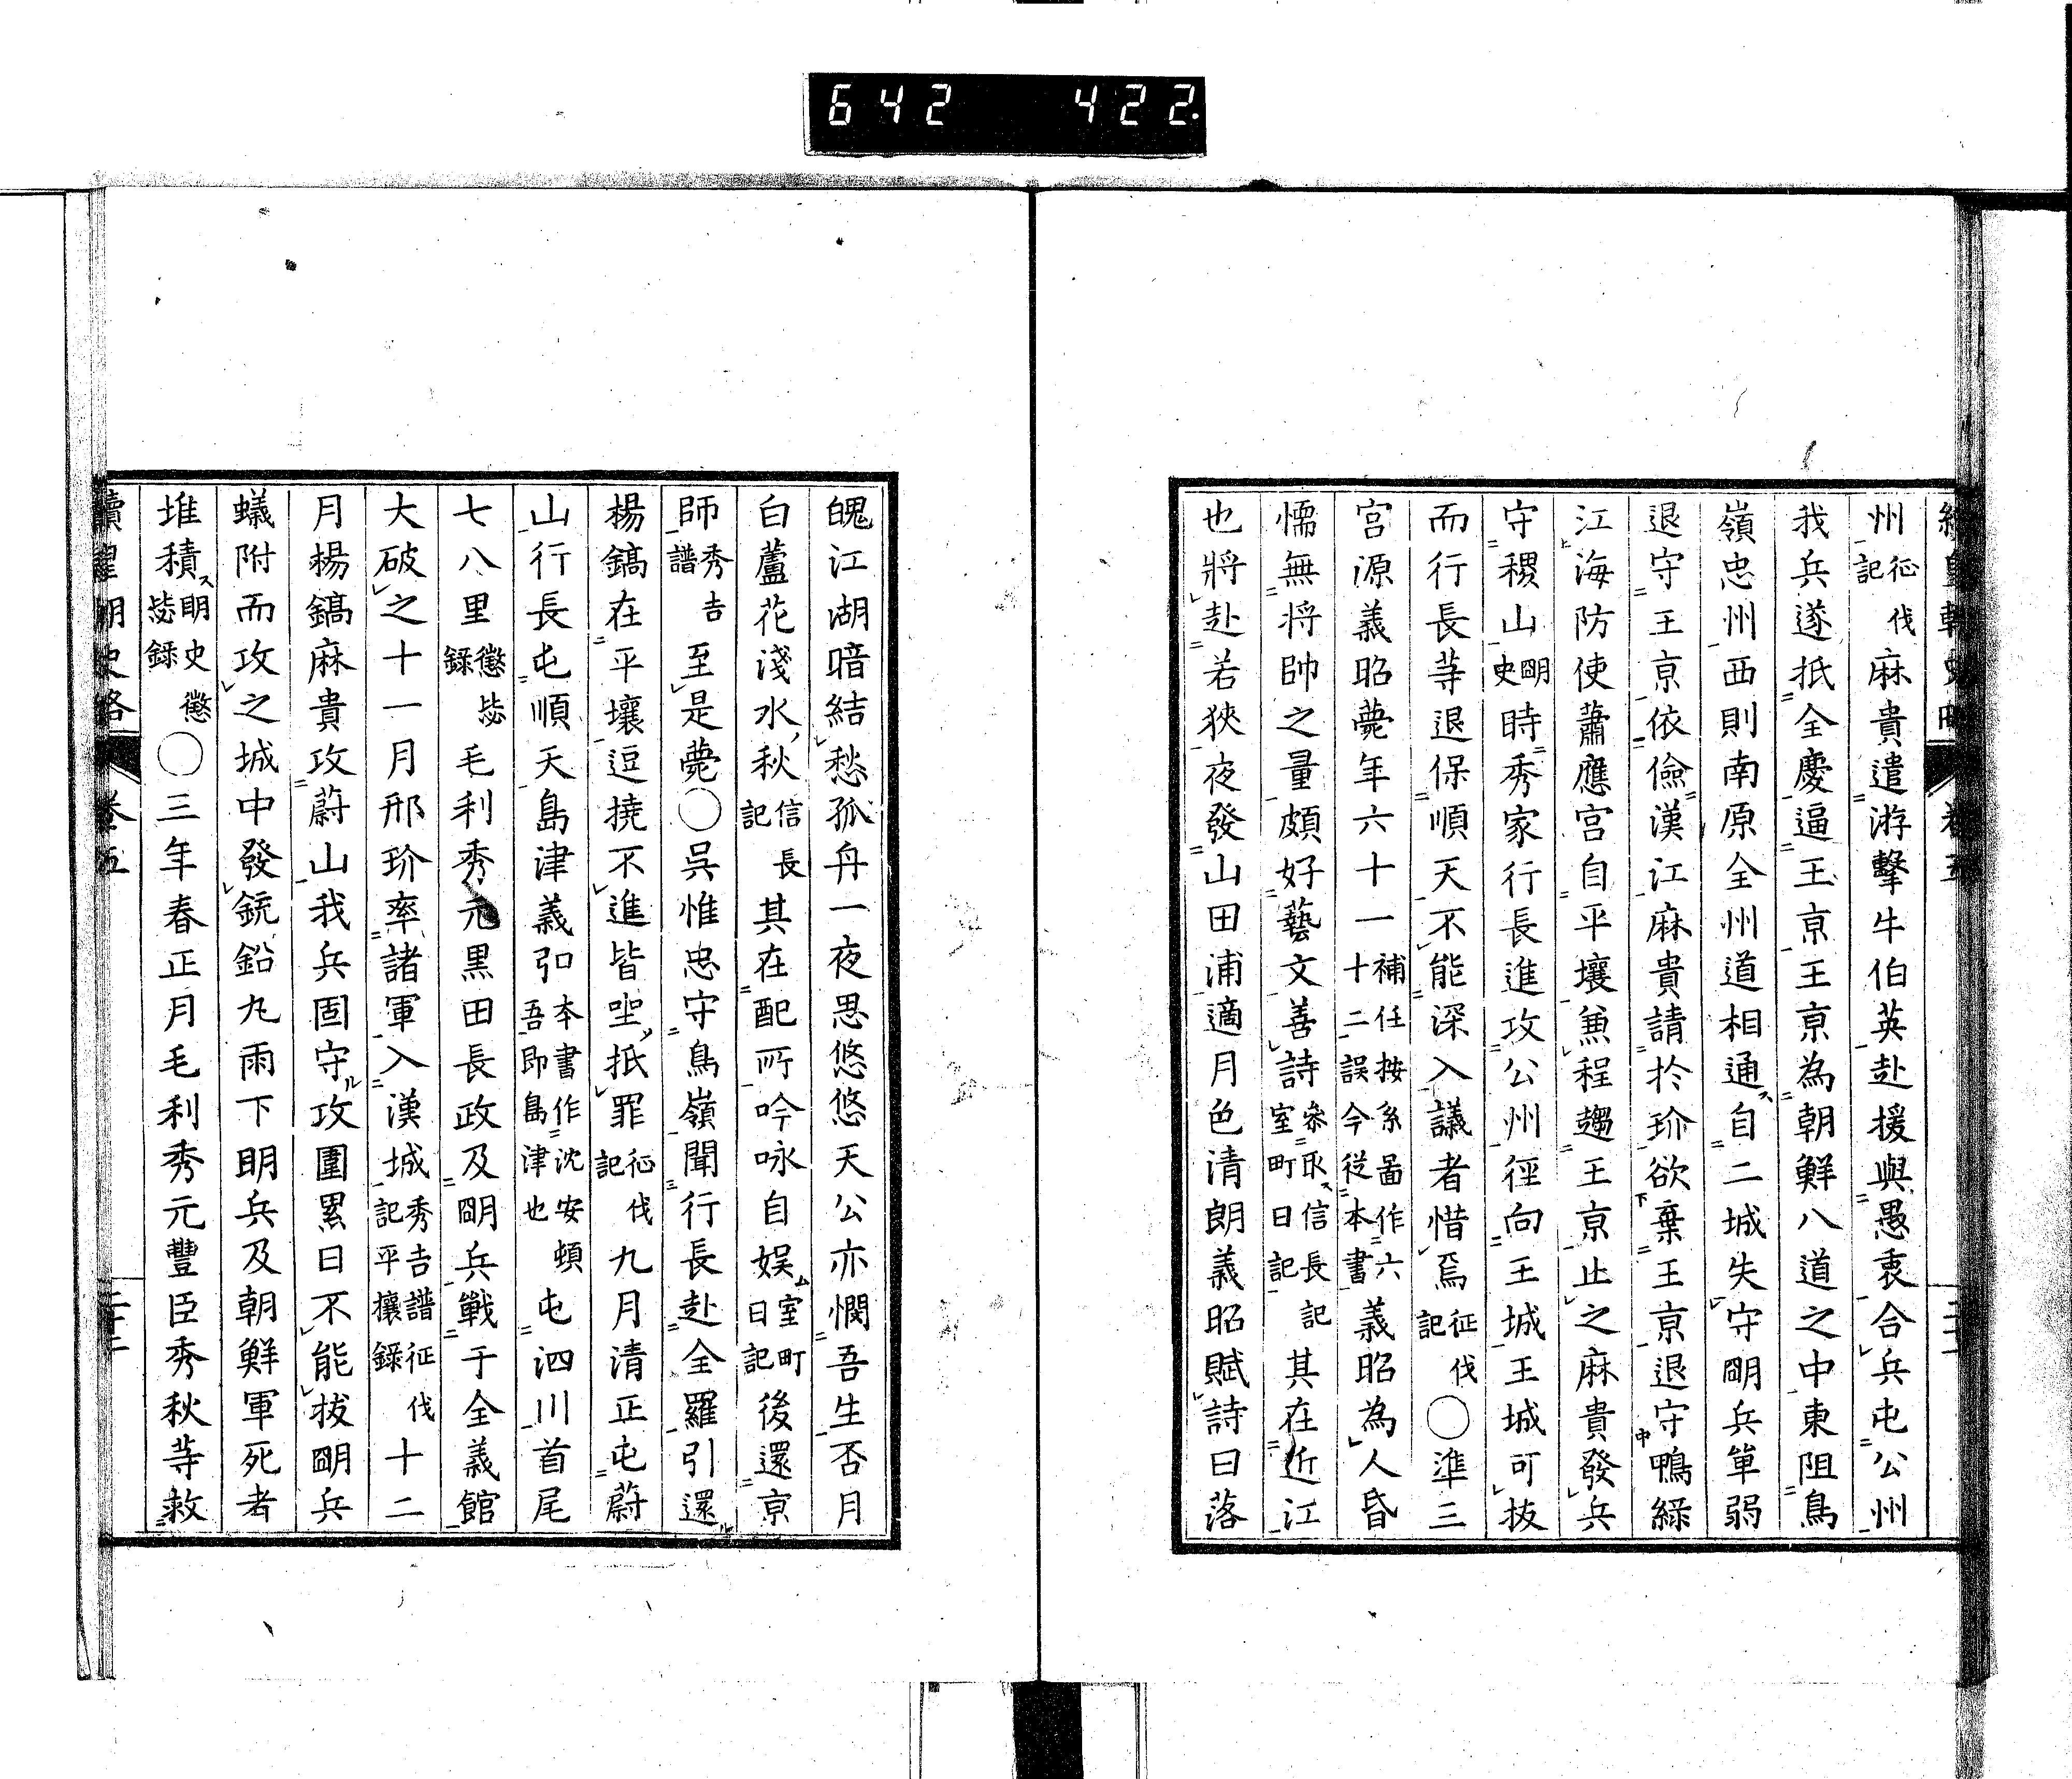 642 422.
續皇朝史略 卷五
州征伐記麻貴遣游擊牛伯英赴援與愚衷合兵屯公州
我兵遂抵全慶逼王京王京為朝鮮八道之中東阻鳥
嶺忠州西則南原全州道相通自二城失守明兵單弱
退守王京依儉漢江麻貴請於玠欲棄王京退守鴨綠
江海防使蕭應宮自平壤兼程趨王京止之麻貴發兵
守稷山明史時秀家行長進攻公州徑向王城王城可拔
而行長等退保順天不能深入議者惜焉征伐記〇準三
宮源義昭薨年六十一補任按系圖作六十二誤今從本書義昭為人昏
懦無将帥之量頗好藝文善詩參取信長記室町日記其在近江
也將赴若狹夜發山田浦適月色清朗義昭賦詩曰落
魄江湖暗結愁孤舟一夜思悠悠天公亦憫吾生否月
白蘆花淺水秋信長記其在配所吟咏自娯室町日記後還京
師秀吉譜至是薨〇吳惟忠守鳥嶺聞行長赴全羅引還
楊鎬在平壤逗撓不進皆坐抵罪征伐記九月清正屯蔚
山行長屯順天島津義弘本書作沈安頓吾即島津也屯泗川首尾
七八里懲毖錄毛利秀元黒田長政及明兵戰于全義館
大破之十一月邢玠率諸軍入漢城秀吉譜征伐記平攘錄十二
月楊鎬麻貴攻蔚山我兵固守攻圍累日不能拔明兵
蟻附而攻之城中發銃鉛丸雨下明兵及朝鮮軍死者
堆積明史懲毖錄〇三年春正月毛利秀元豐臣秀秋等救
續皇朝史略 卷五